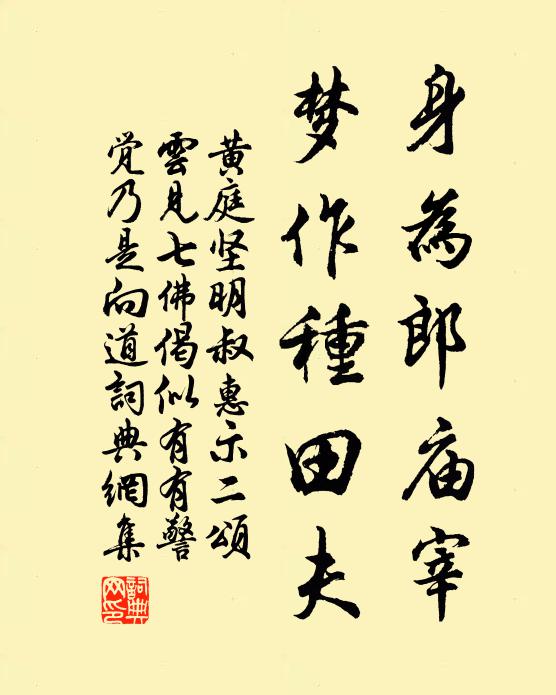 身為郎庙宰
梦作種田夫
黄庭坚明叔惠示二頌
雲見七佛偈似有有警
觉乃是向道詞典網集
詞典网印